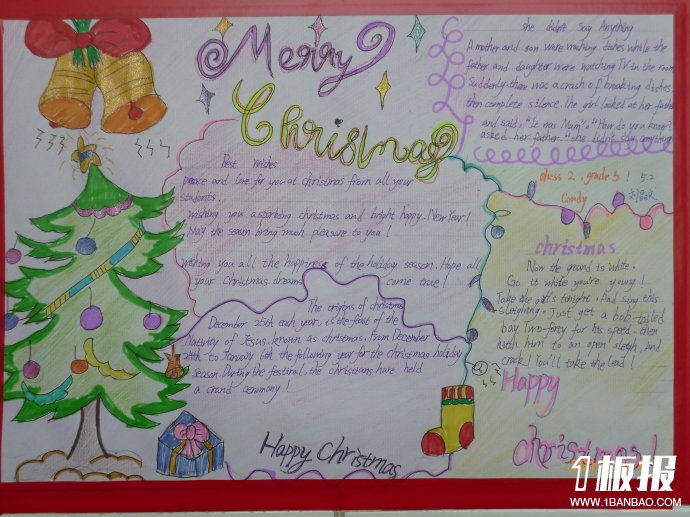 Merry
Christmas
she didn't Say Anything
A mother and son were washing dishes while the
father and daughter were watching TV in the room.
Suddenly there was a crash of breaking dishes,
then complete silence. The girl looked at her father
and said, "It was Mum". "How do you know?"
asked her father. "she didn't say anything
class 2, grade 5! 5.2
Candy
Best Wishes
peace and love for you at christmas from all your
students.
Wishing you a sparking christmas and bright happy New Year!
May the season bring much pleasure to you!
wishing you all the happiness of the holiday season. Hope all
your Christmas dreams come true!
The origins of christmas
December 25th each year, is the feast of the
Nativity of Jesus, known as christmas. From December
24th to January 6th the following year for the christmas holiday
season. During the festival, the christians have held
a grand ceremony!
Happy Christmas
christmas
Now the ground is white.
Go it while you're young!
Take the girls tonight. And sing this
sleighing. Just get a bob-tailed
bay Two-forty for his speed. then
hitch him to an open sleigh, and
crack! You'll take the lead!
Happy
christmas!
板报
WWW.1BANBAO.COM